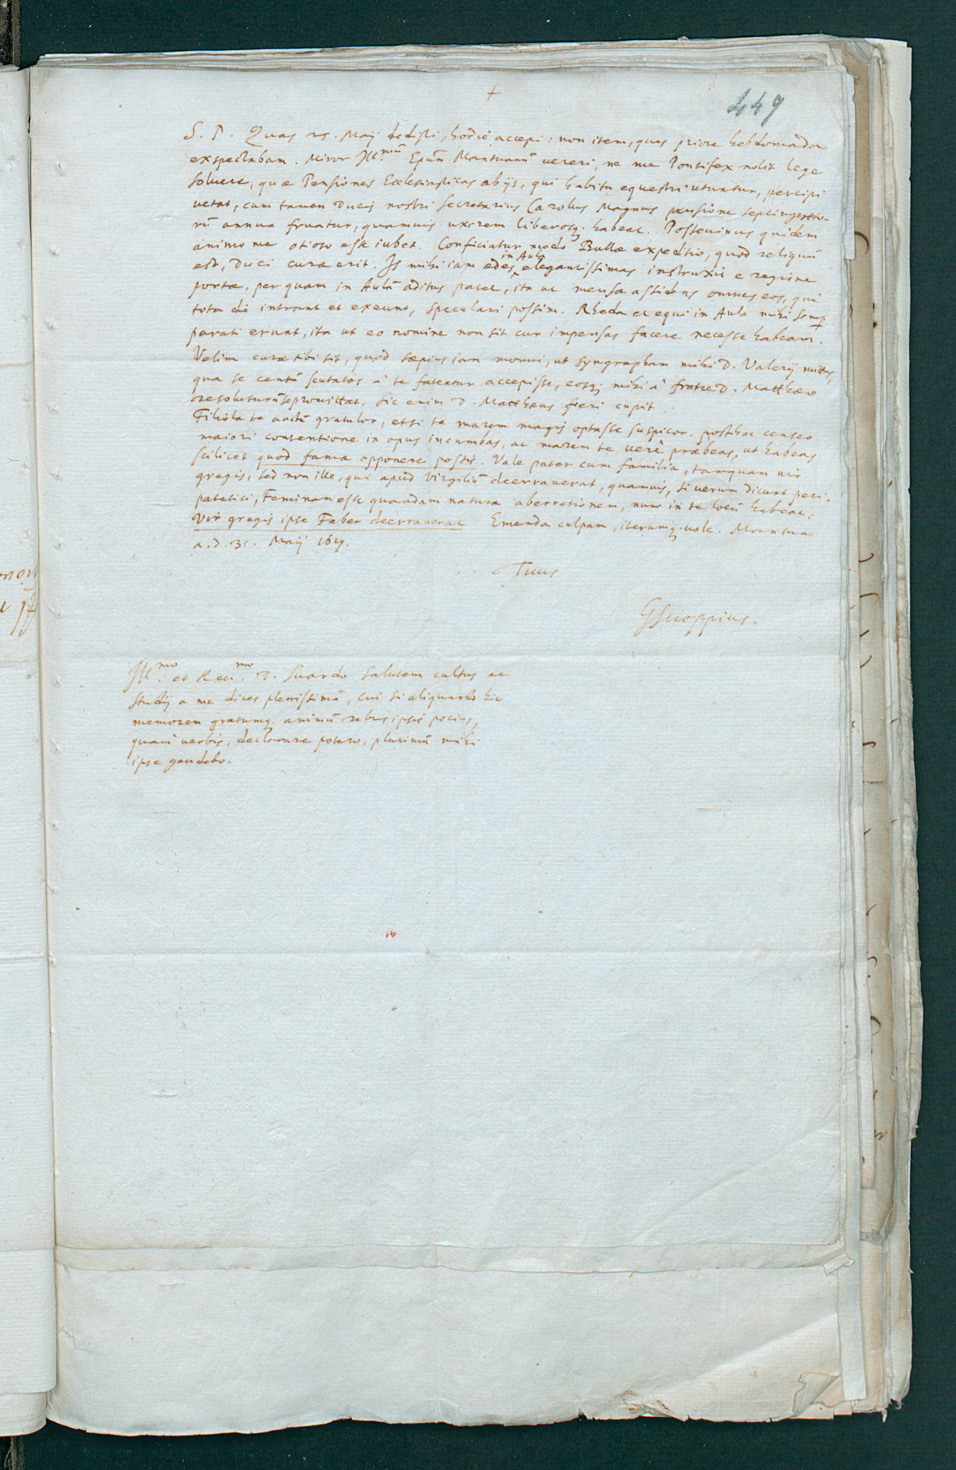 +
449
S. P. Quas 25. Maij dedisti, hodie accepi: non item, quas priore hebdomada
exspectabam. Miror Ill.mũ Epũm Mantuanũ vereri, ne me Pontifex nolit lege
soluere, quae Pensiones Ecclesiasticas ab ijs, qui habitu equestri utuntur, percipi
vetat, cum tamen Ducis nostri Secretarius Carolus Magnus pensione septingento-
rũ annua fruatur, quamuis uxorem liberosq. habeat. Posseuinus quidem
animo me otioso esse iubet. Conficiatur modò Bullae expeditio, quod reliquũ
est, Duci curae erit. Is mihi iam aedes in Aula elegantissimas instruxit e regione
portae, per quam in Aulã aditus patet, ita ut mensae assidens omnes eos, qui
toto die intrant et exeunt, speculari possim. Rheda et equi in Aula mihi semp.
parati erunt, ita ut eo nomine non sit cur impensas facere necesse habeam.
Velim curae tibi sit, quod saepius iam monui, ut syngrapham mihi D. Valerij mittas,
qua se centũ scutatos à te fateatur accepisse, eosq. mihi à fratre D. Matthaeo
resoluturũ se promittat, sic enim D. Matthaeus fieri cupit.
Filiola te auctũ gratulor, etsi te marem magis optasse suspicor. posthac censeo
maiori contentione in opus incumbas, ac marem te verè praebeas, ut habeas
scilicet quod famae opponere possis. Vale pater cum familia, tamquam vir
gregis, sed non ille, qui apud Virgiliũ deerrauerat, quamuis, si verum dicunt peri-
patetici, Feminam esse quandam naturae aberrationem, nunc in te locũ habeat:
Vir gregis ipse Faber deerrauerat. Emenda culpam, iterumq. vale. Mantua
a. d. 31. Maij 1619.
Tuus
GScioppius.
Ill.mo et Reu.mo D. Suardo salutem cultus ac
studij a me dices plenissimã, cui si aliquando hic
memorem gratumq. animũ rebus ipsis potius,
quam verbis, declarare potero, plurimũ mihi
ipse gaudebo.